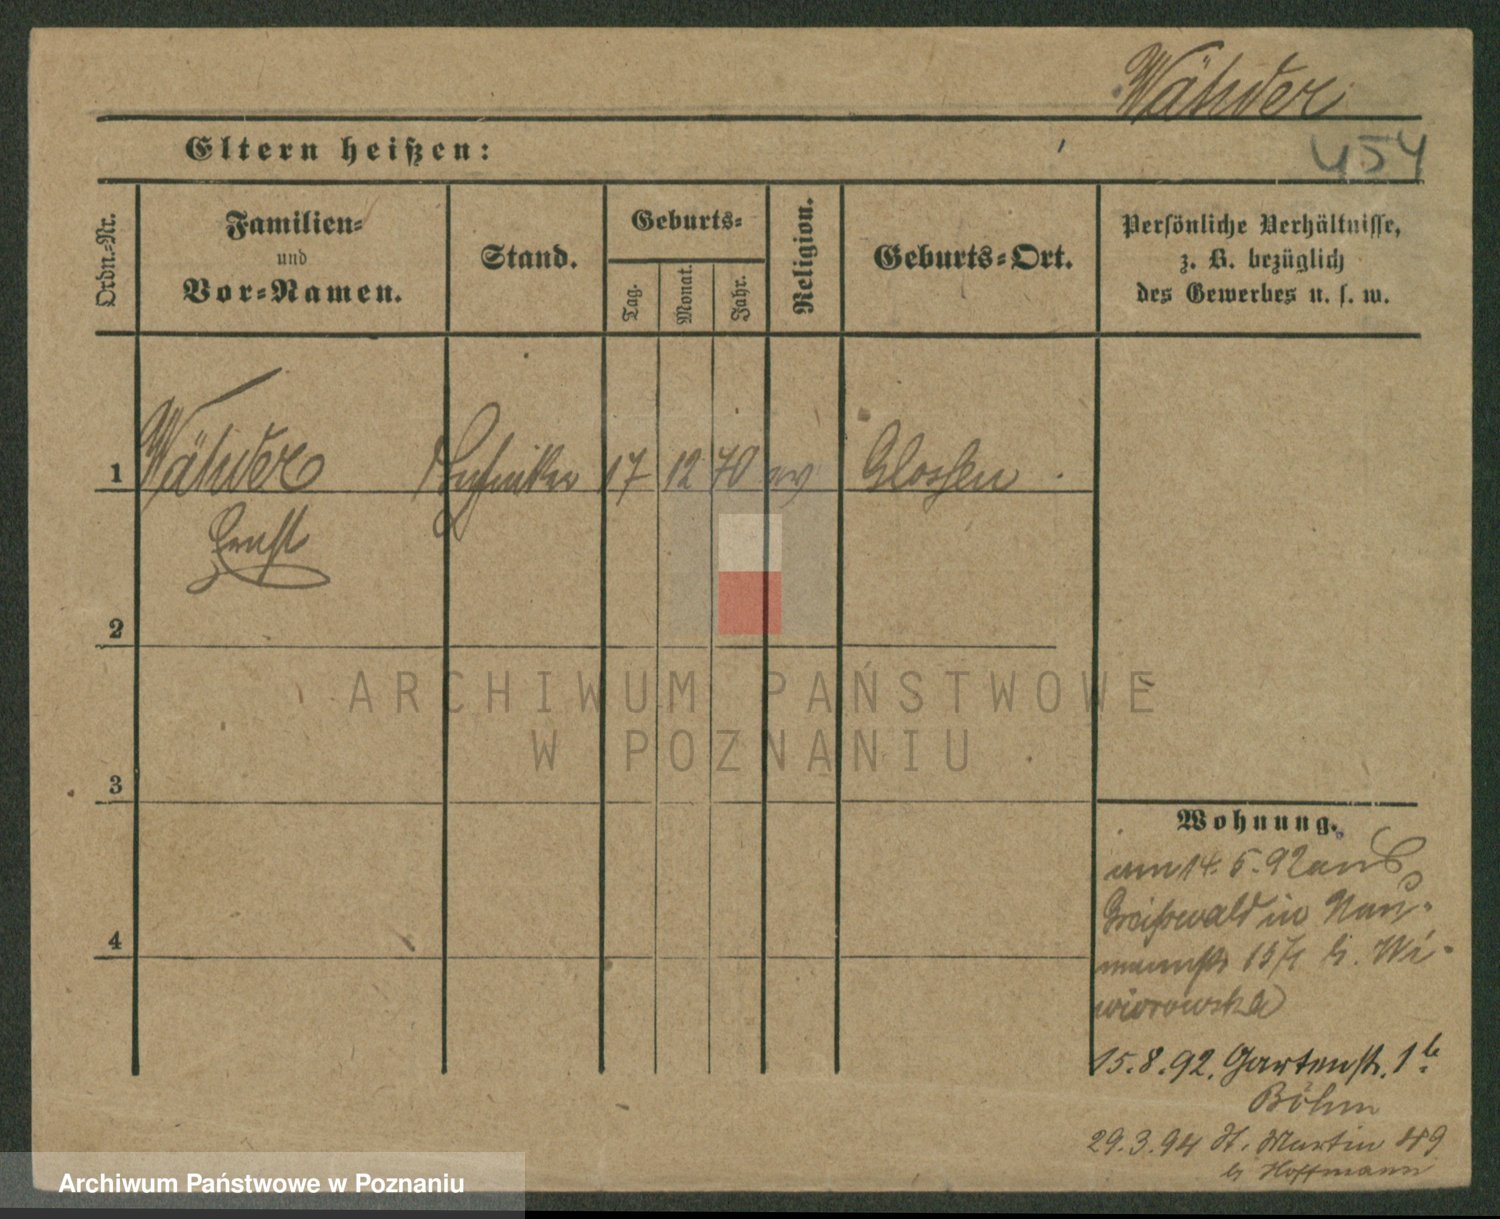 Wähder
454
Eltern heißen:
Ordn.-Nr.
Familien-
und
Vor-Namen.
Stand.
Geburts-
Tag.
Monat.
Jahr.
Religion.
Geburts-Ort.
Persönliche Verhältnisse,
z. B. bezüglich
des Gewerbes u. s. w.
1 Wähder Techniker 17 12 70 ev Glossen
Ernst
2
ARCHIWUM PAŃSTWOWE
W POZNANIU
3
Wohnung.
am 14. 5. 92 aus
Greifswald in Nau-
mannstr 15/I b. Wi-
wiorowska
4
15.8.92. Gartenstr. 1b.
Böhm
29.3.94 St. Martin
b Hoffmann
Archiwum Państwowe w Poznaniu